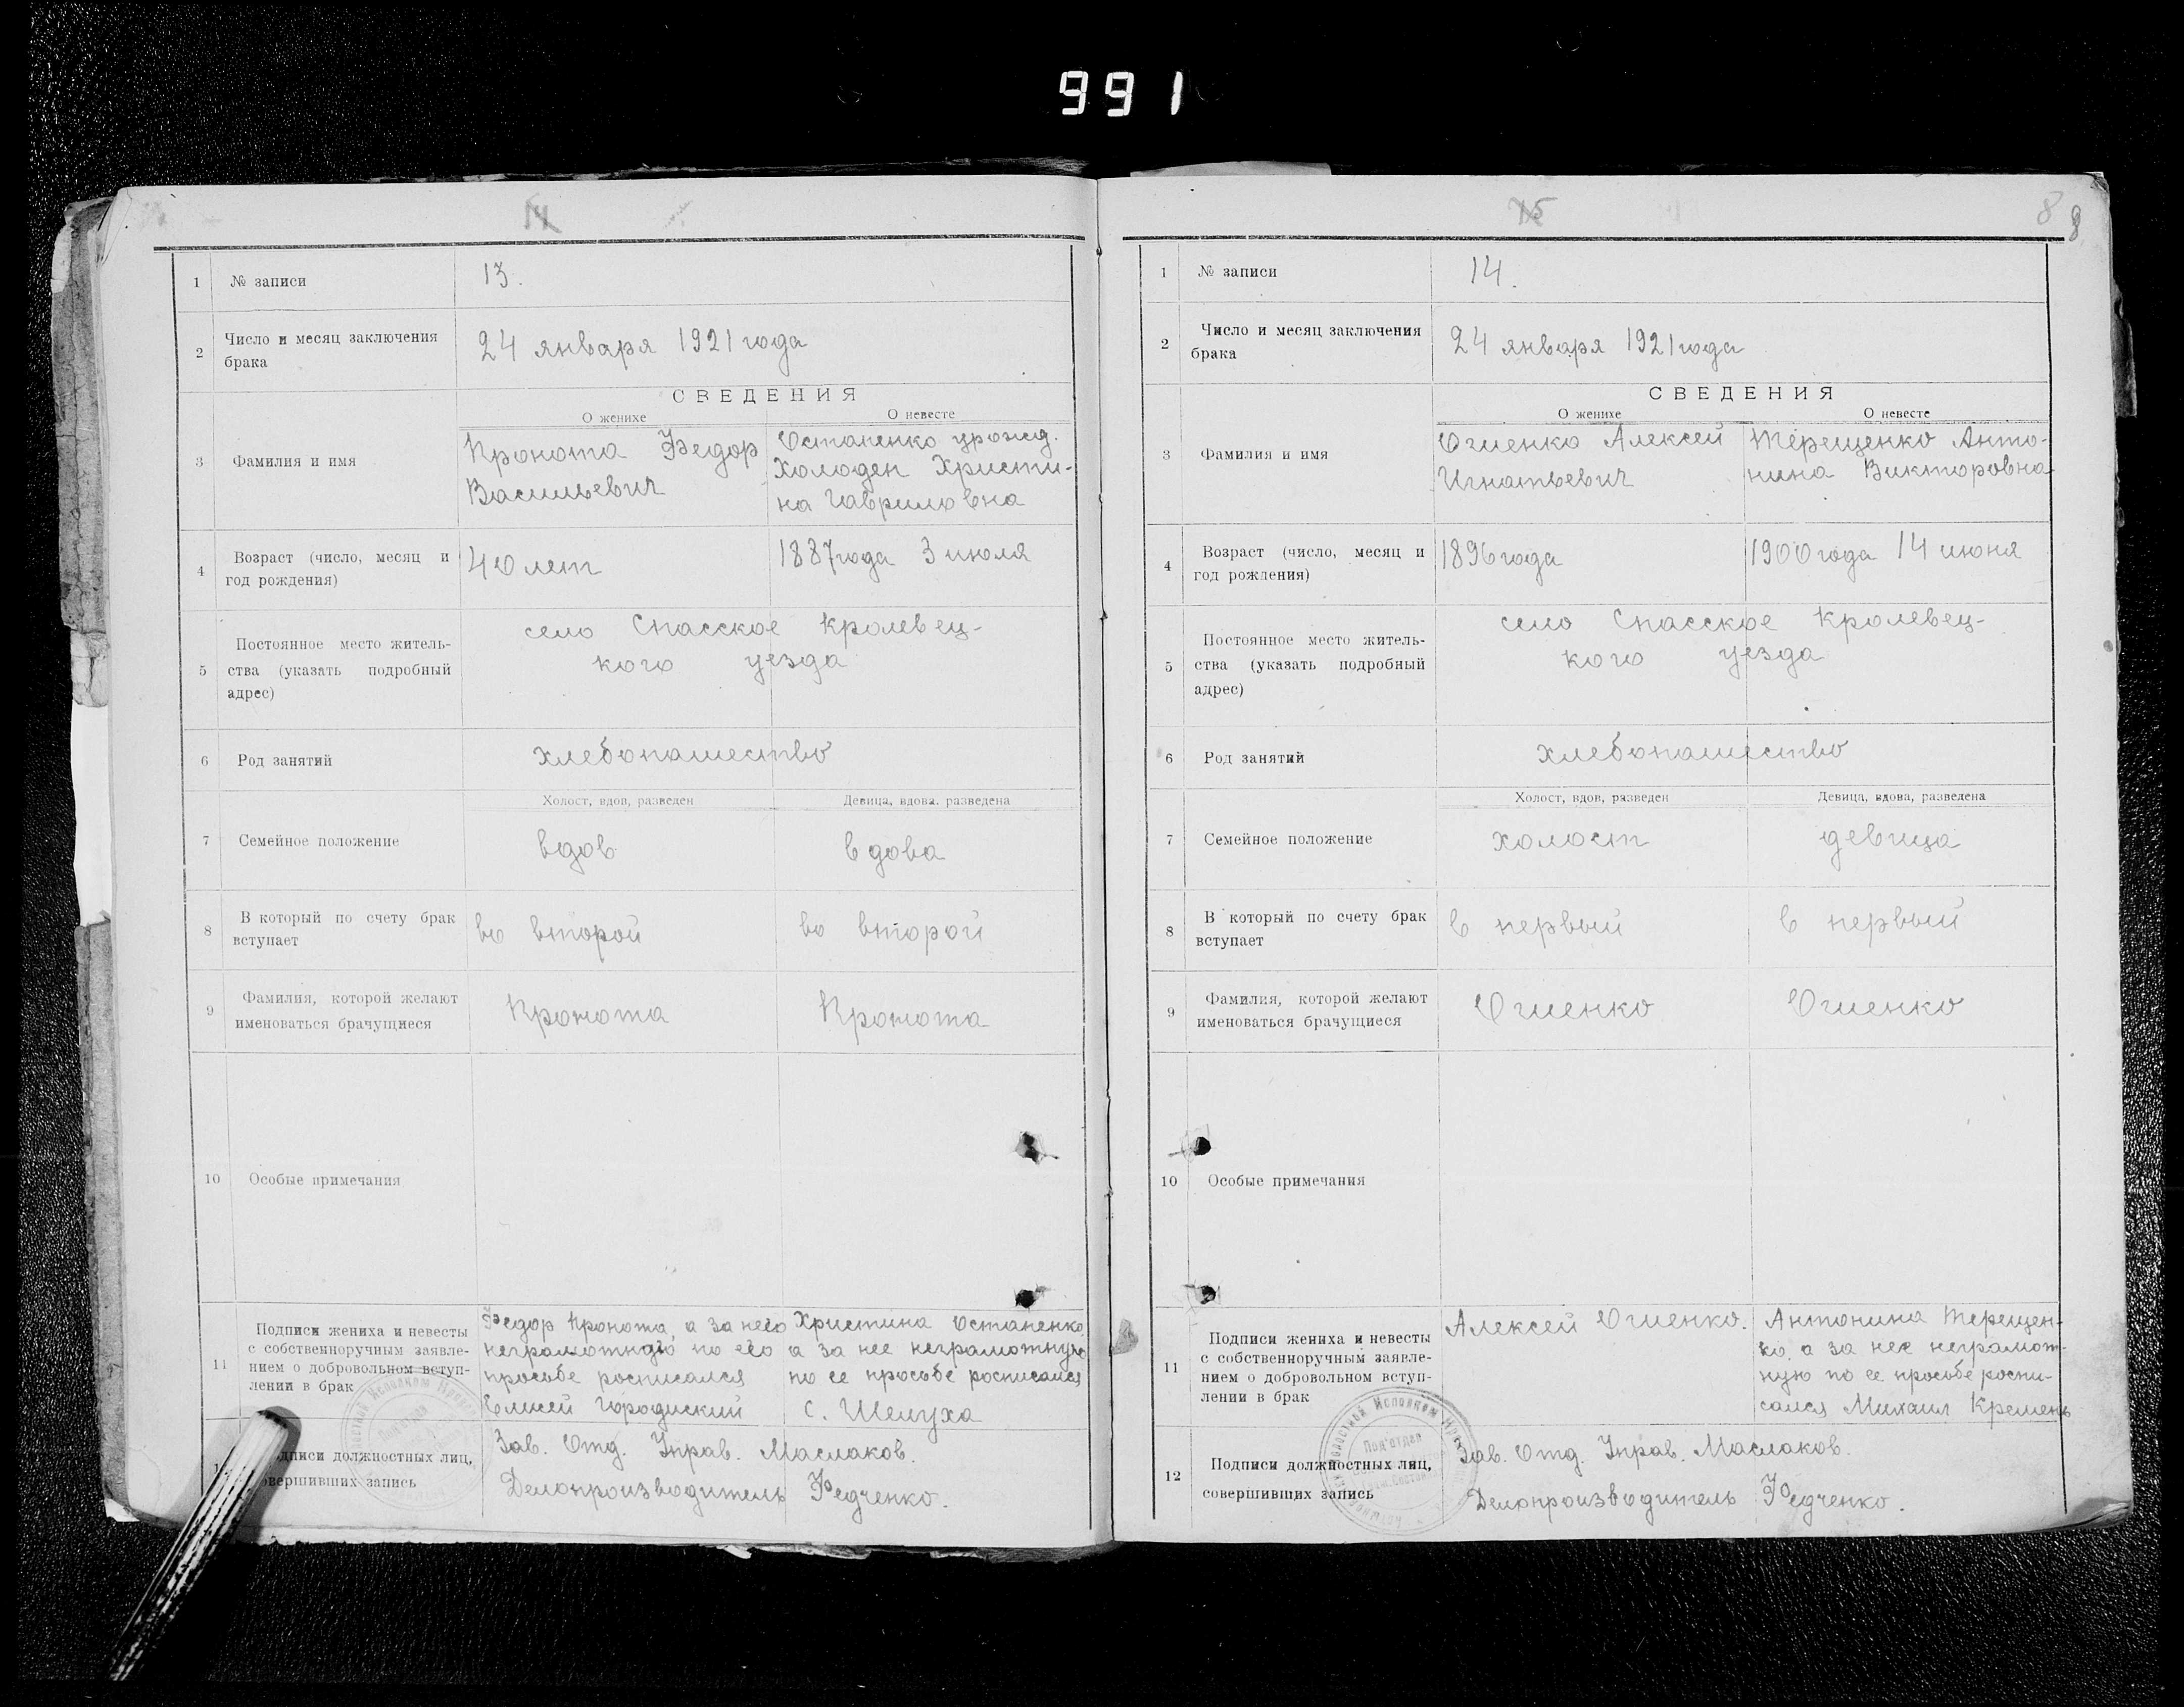 991
14
1 № записи 13.
2 Число и месяц заключения брака 24 января 1921 года
СВЕДЕНИЯ
О женихе О невесте
3 Фамилия и имя
Кронота Федор
Васильевич
Остапенко урожд.
Холоден Христи-
на Гавриловна
4 Возраст (число, месяц и
год рождения)
40 лет 1887 года 3 июля
5 Постоянное место житель-
ства (указать подробный
адрес)
село Спасское Кролевец-
кого уезда
6 Род занятий хлебопашество
Холост, вдов, разведен Девица, вдова, разведена
7 Семейное положение вдов вдова
8 В который по счету брак
вступает
во второй во второй
9 Фамилия, которой желают
именоваться брачущиеся
Кронота Кронота
10 Особые примечания
11 Подписи жениха и невесты
с собственноручным заявле-
нием о добровольном вступ-
лении в брак
Федор Кронота, а за него
неграмотного по его
просьбе росписался
Елисей Городиский
Христина Остапенко,
а за нее неграмотную
по ее просьбе росписался
С. Шелуха
должностных лиц,
запись
Зав. Отд. Управ. Маслаков.
Делопроизводитель Федченко.
15
8 8
1 № записи 14.
2 Число и месяц заключения
брака
24 января 1921 года
СВЕДЕНИЯ
О женихе О невесте
3 Фамилия и имя
Огиенко Алексей
Игнатьевич
Терещенко Анто-
нина Викторовна
4 Возраст (число, месяц и
год рождения)
1896 года 1900 года 14 июня
5 Постоянное место житель-
ства (указать подробный
адрес)
село Спасское Кролевец-
кого уезда
6 Род занятий хлебопашество
Холост, вдов, разведен Девица, вдова, разведена
7 Семейное положение холост девица
8 В который по счету брак
вступает
в первый в первый
9 Фамилия, которой желают
именоваться брачущиеся
Огиенко Огиенко
10 Особые примечания
11 Подписи жениха и невесты
с собственноручным заявле-
нием о добровольном вступ-
лении в брак
Алексей Огиенко.
Антонина Терещен-
ко, а за нее неграмот-
ную по ее просьбе роспи-
сался Михаил Кремень
12 Подписи должностных лиц,
совершивших запись
Зав. Отд. Управ. Маслаков.
Делопроизводитель Федченко.
Исполком
Под'отдел